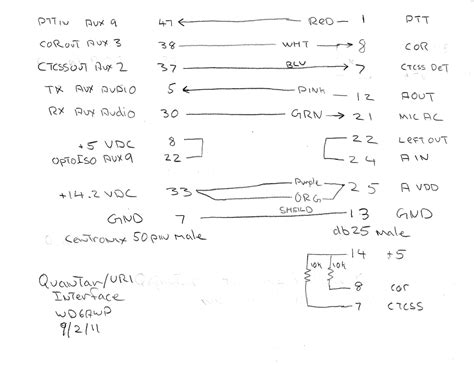 PTTIN AUX 9 47 RED 1 PTT
COROUT AUX 3 38 WHT 8 COR
CTCSSOUT AUX 2 37 BLU 7 CTCSS DET
TX AUX AUDIO 5 PINK 12 AOUT
RX AUX AUDIO 30 GRN 21 MIC AC
+5 VDC 8 22 LEFT OUT
OPTOISO AUX9 22 24 A IN
+14.2 VDC 33 Purple 25 A VDD
ORG
GND 7 SHEILD 13 GND
Centronix 50 pin male db25 male
14 +5
10k 10k
8 COR
7 CTCSS
Quantar/URI
Interface
WD6AWP
9/2/11